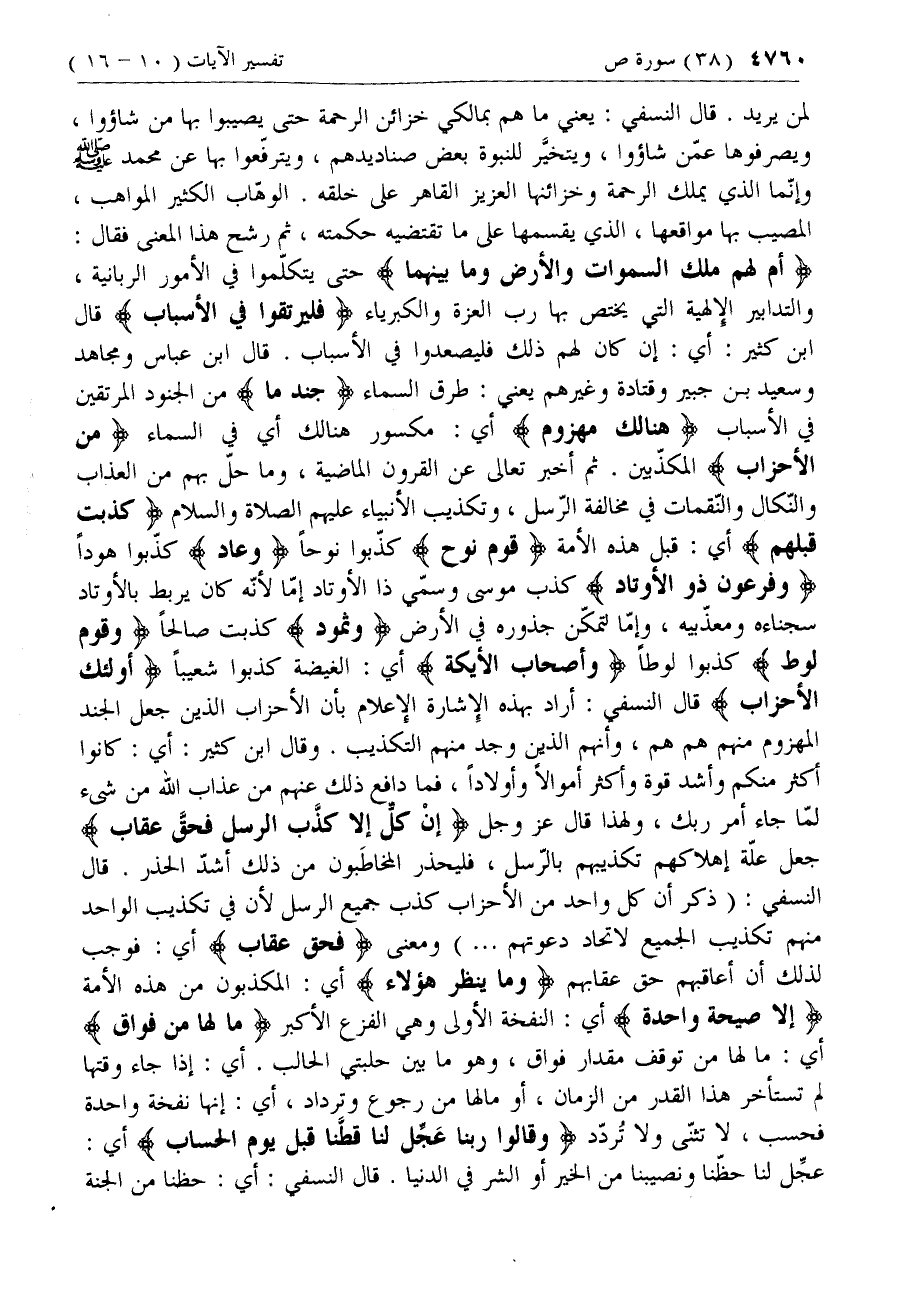 ٤٧٦٠ (٣٨) سورة ص تفسير الآيات ( ١٠ – ١٦ )
لمن يريد . قال النسفي : يعني ما هم بمالكي خزائن الرحمة حتى يصيبوا بها من شاؤوا ،
ويصرفوها عمّن شاؤوا ، ويتخيَّر للنبوة بعض صناديدهم ، ويترفّعوا بها عن محمد ﷺ
وإنّما الذي يملك الرحمة وخزائنها العزيز القاهر على خلقه . الوهّاب الكثير المواهب ،
المصيب بها مواقعها ، الذي يقسمها على ما تقتضيه حكمته ، ثم رشح هذا المعنى فقال :
﴿ أم لهم ملك السموات والأرض وما بينهما ﴾ حتى يتكلّموا في الأمور الربانية ،
والتدابير الإلهية التي يختص بها رب العزة والكبرياء ﴿ فليرتقوا في الأسباب ﴾ قال
ابن كثير : أي : إن كان لهم ذلك فليصعدوا في الأسباب . قال ابن عباس ومجاهد
وسعيد بن جبير وقتادة وغيرهم يعني : طرق السماء ﴿ جند ما ﴾ من الجنود المرتقين
في الأسباب ﴿ هنالك مهزوم ﴾ أي : مكسور هنالك أي في السماء ﴿ من
الأحزاب ﴾ المكذّبين . ثم أخبر تعالى عن القرون الماضية ، وما حلّ بهم من العذاب
والنّكال والنّقمات في مخالفة الرّسل ، وتكذيب الأنبياء عليهم الصلاة والسلام ﴿ كذبت
قبلهم ﴾ أي : قبل هذه الأمة ﴿ قوم نوح ﴾ كذّبوا نوحاً ﴿ وعاد ﴾ كذّبوا هوداً
﴿ وفرعون ذو الأوتاد ﴾ كذب موسى وسمّي ذا الأوتاد إمّا لأنّه كان يربط بالأوتاد
سجناءه ومعذّبيه ، وإمّا لتمكّن جذوره في الأرض ﴿ وثمود ﴾ كذبت صالحاً ﴿ وقوم
لوط ﴾ كذبوا لوطاً ﴿ وأصحاب الأيكة ﴾ أي : الغيضة كذبوا شعيباً ﴿ أولئك
الأحزاب ﴾ قال النسفي : أراد بهذه الإشارة الإعلام بأن الأحزاب الذين جعل الجند
المهزوم منهم هم هم ، وأنهم الذين وجد منهم التكذيب . وقال ابن كثير : أي : كانوا
أكثر منكم وأشد قوة وأكثر أموالاً وأولاداً ، فما دافع ذلك عنهم من عذاب الله من شىء
لمّا جاء أمر ربك ، ولهذا قال عز وجل ﴿ إنْ كلٌّ إلا كذَّب الرسل فحقَّ عقاب ﴾
جعل علّة إهلاكهم تكذيبهم بالرّسل ، فليحذر المخاطَبون من ذلك أشدّ الحذر . قال
النسفي : ( ذكر أن كل واحد من الأحزاب كذب جميع الرسل لأن في تكذيب الواحد
منهم تكذيب الجميع لاتحاد دعوتهم ... ) ومعنى ﴿ فحق عقاب ﴾ أي : فوجب
لذلك أن أعاقبهم حق عقابهم ﴿ وما ينظر هؤلاء ﴾ أي : المكذبون من هذه الأمة
﴿ إلا صيحة واحدة ﴾ أي : النفخة الأولى وهي الفزع الأكبر ﴿ ما لها من فواق ﴾
أي : ما لها من توقف مقدار فواق ، وهو ما بين حلبتي الحالب . أي : إذا جاء وقتها
لم تستأخر هذا القدر من الزمان ، أو مالها من رجوع وترداد ، أي : إنها نفخة واحدة
فحسب ، لا تثنّى ولا تُردّد ﴿ وقالوا ربنا عَجِّل لنا قطَّنا قبل يوم الحساب ﴾ أي :
عجِّل لنا حظّنا ونصيبنا من الخير أو الشر في الدنيا . قال النسفي : أي : حظنا من الجنة